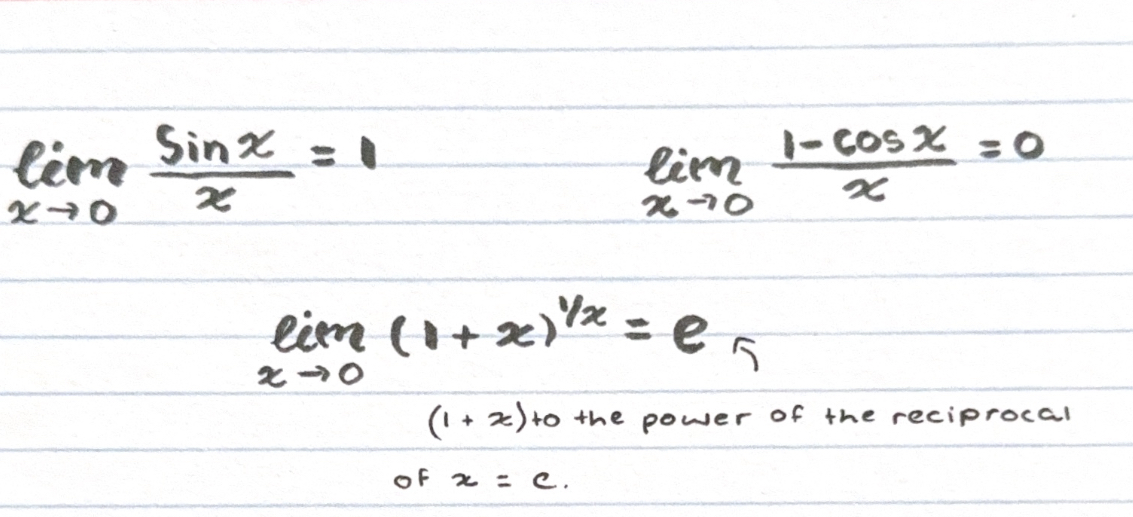 lim x→0 sin x / x = 1
lim x→0 1-cos x / x = 0
lim x→0 (1 + x)^1/x = e
(1 + x) to the power of the reciprocal
of x = e.